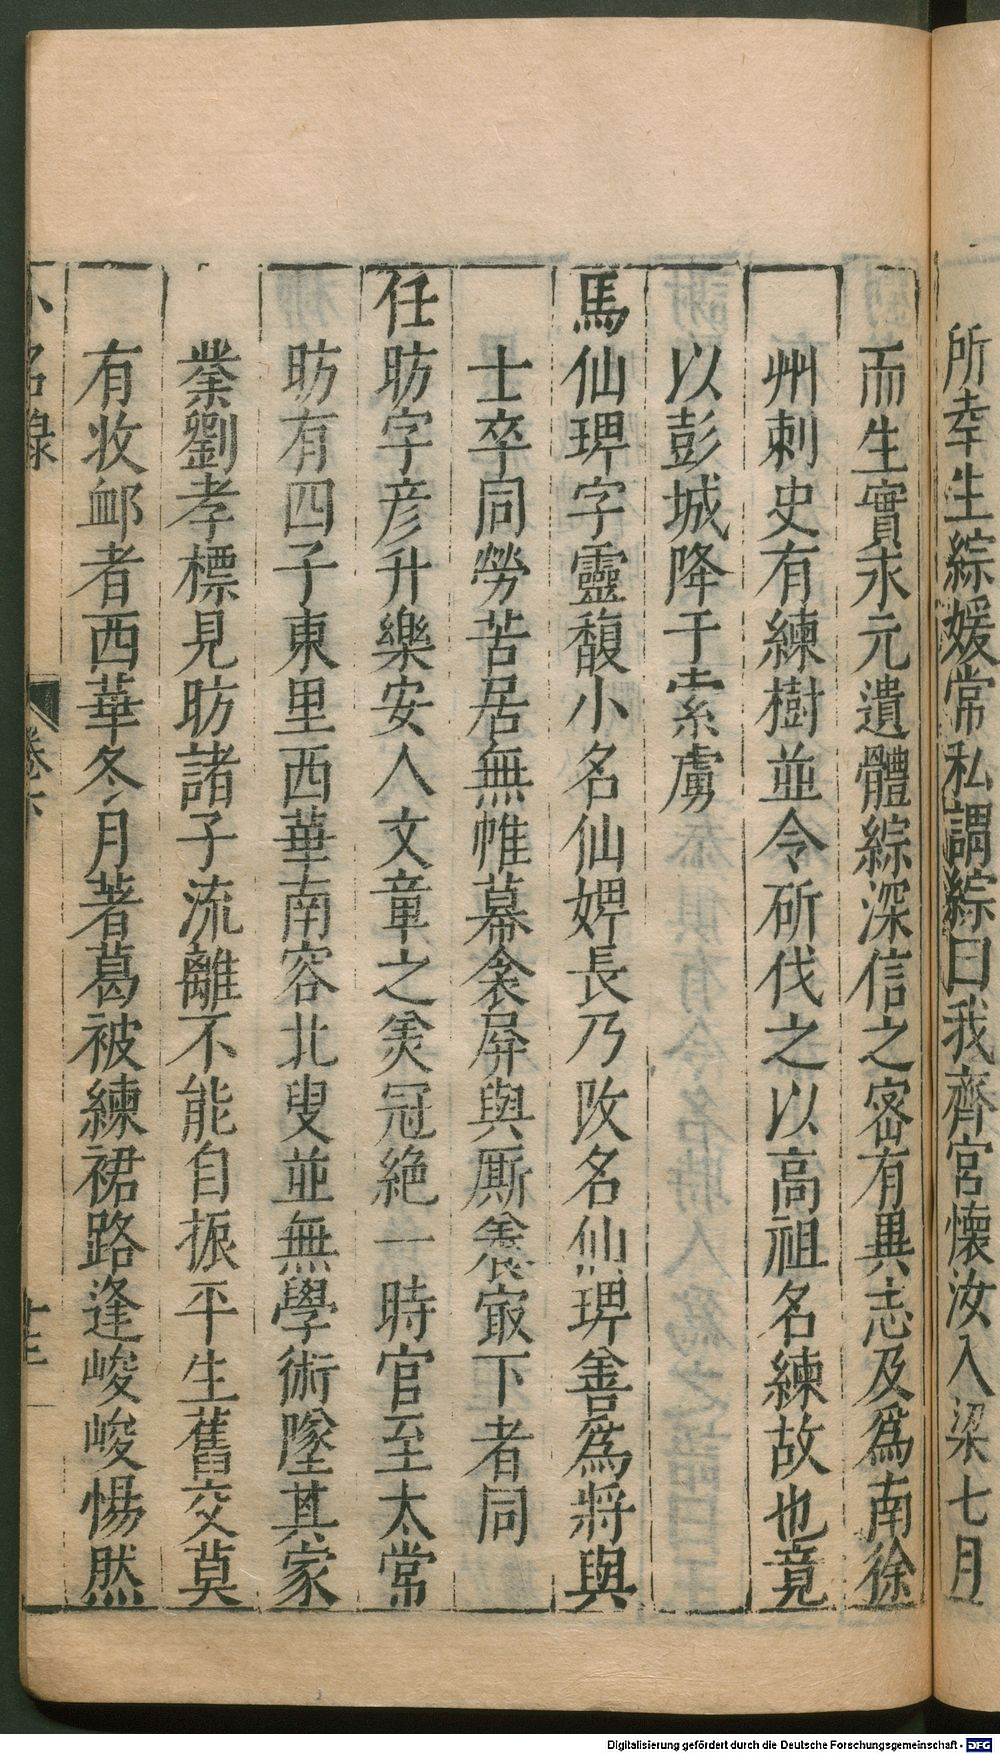 所幸生綜媛常私謂綜曰我齊宮懷汝入梁七月
而生實永元遺體綜深信之密有異志及爲南徐
州刺史有練樹並令斫伐之以高祖名練故也竟
以彭城降于索虜
馬仙琕字靈馥小名仙婢長乃改名仙琕善爲將與
士卒同勞苦居無帷幕衾屏與厮養㝡下者同
任昉字彦升樂安人文章之美冠絶一時官至太常
昉有四子東里西華南容北叟並無學術墜其家
業劉孝標見昉諸子流離不能自振平生舊交莫
有收䘏者西華冬月著葛被練裙路逢峻峻惕然
小名錄 卷六 十三
Digitalisierung gefördert durch die Deutsche Forschungsgemeinschaft - DFG